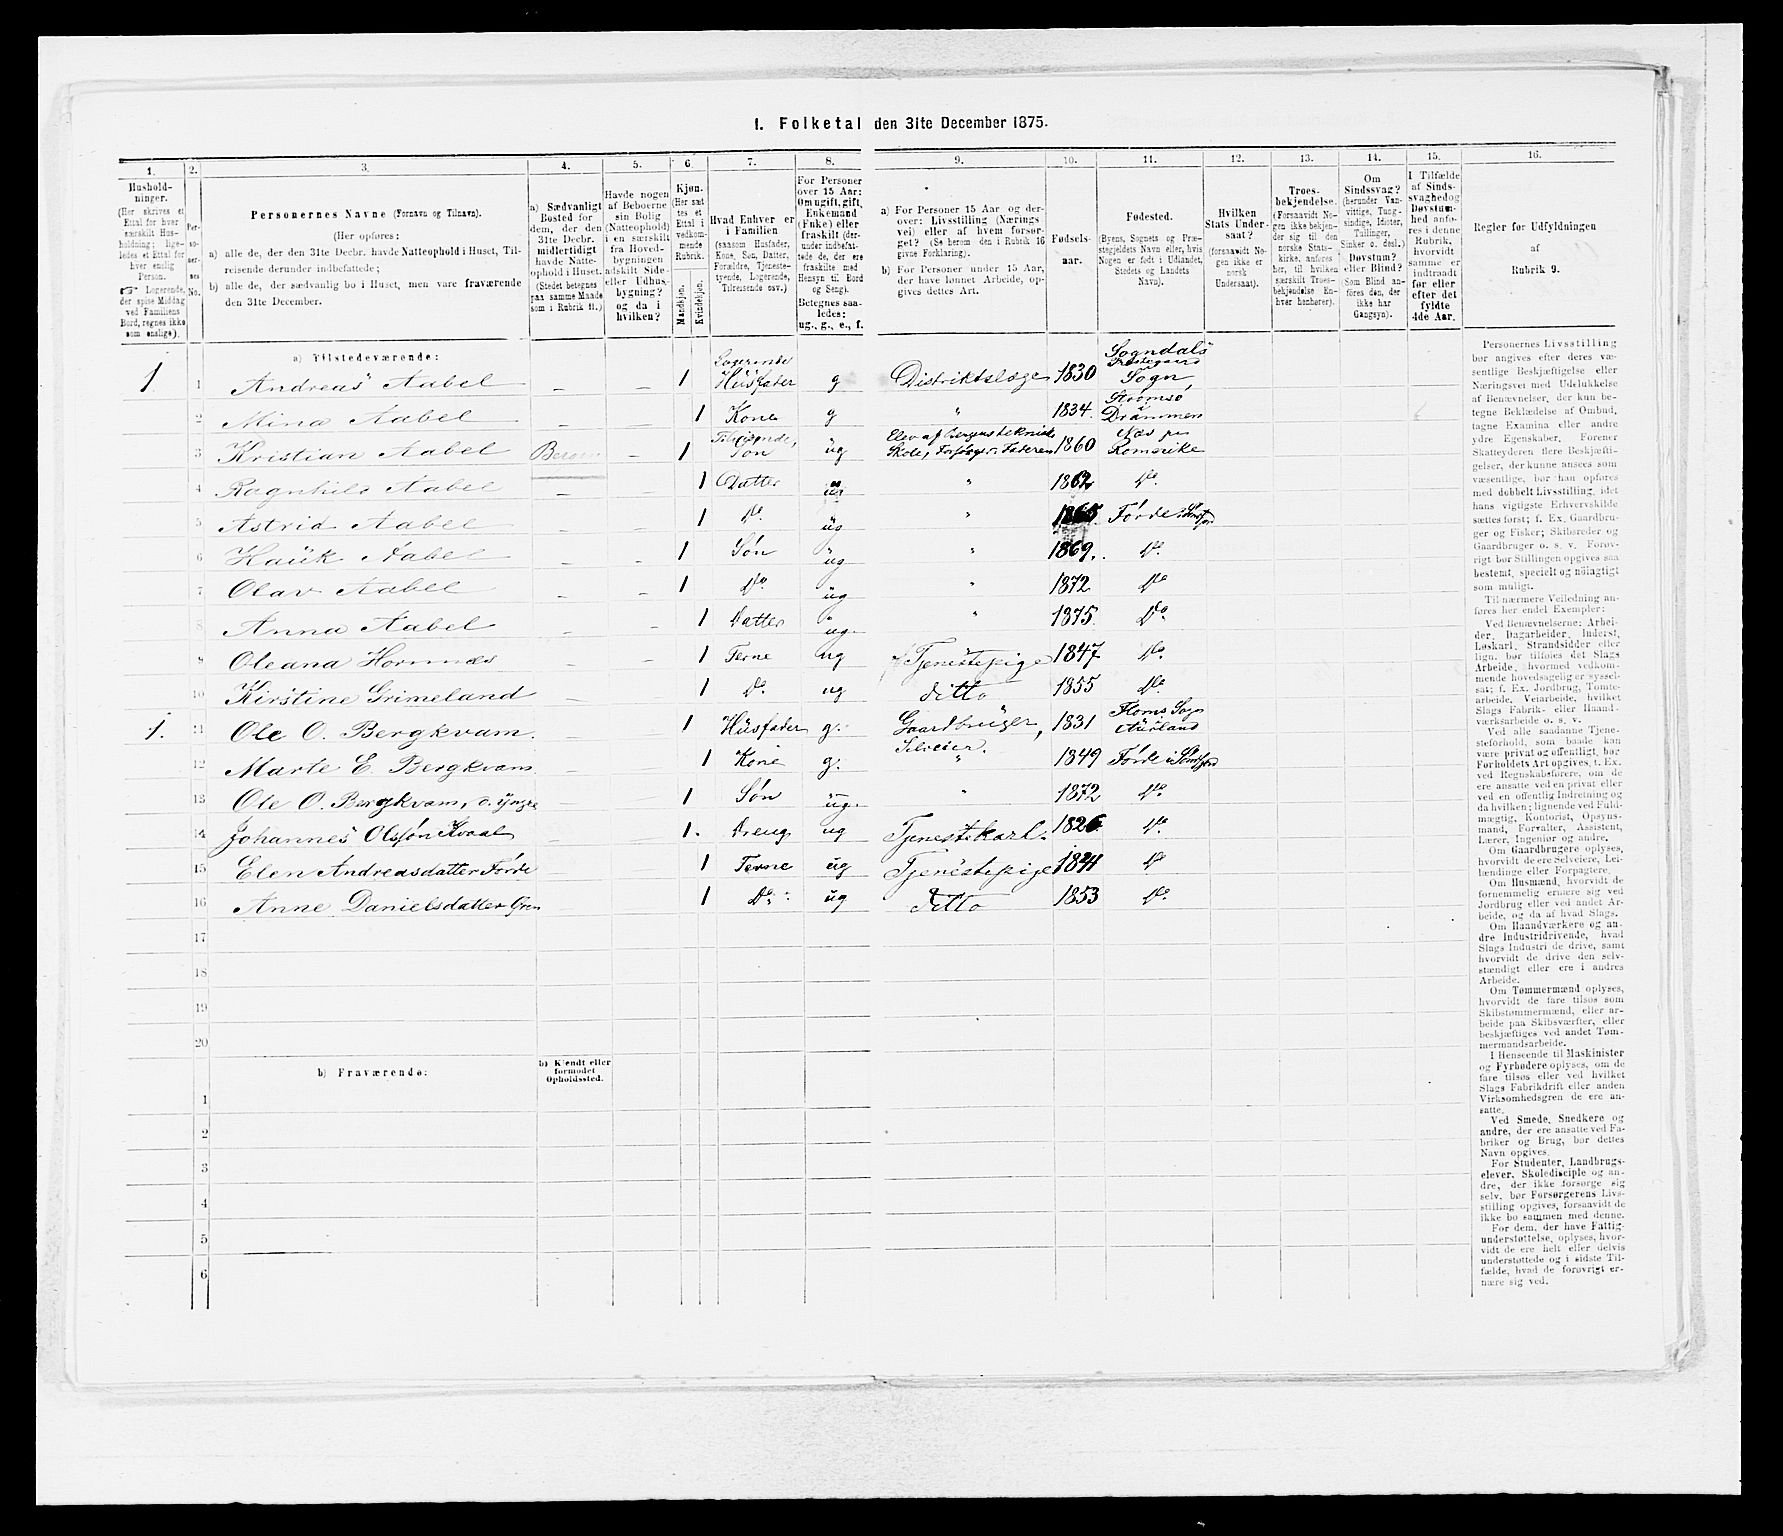 1. Folketal den 31te December 1875.
1. 2. 3. 4. 5. 6. 7. 8. 9. 10. 11. 12. 13. 14. 15. 16.
Hushold-
ninger.
(Her skrives et
Ettal for hver
særskilt Hus-
holdning; lige-
ledes et Ettal for
hver enslig
Person.
☞ Logerende,
der spise Middag
ved Familiens
Bord, regnes ikke
som enslige).
Per-
so-
ner-
nes
No.
Personernes Navne (Fornavn og Tilnavn).
(Her opføres:
a) alle de, der den 31te Decbr. havde Natteophold i Huset, Til-
reisende derunder indbefattede;
b) alle de, der sædvanlig bo i Huset, men vare fraværende
den 31te December.
a) Sædvanligt
Bosted for
dem, der den
31te Decbr.
midlertidigt
havde Natte-
ophold i Huset.
(Stedet betegnes
paa samme Maade
som i Rubrik 11.)
Havde nogen
af Beboerne
sin Bolig
(Natteophold)
i en særskilt
fra Hoved-
bygningen
adskilt Side-
eller Udhus-
bygning?
og da i
hvilken?
Kjøn.
(Her sæt
tes et
Ettal i
vedkom-
mende
Rubrik.
Mandkjøn.
Kvindekjøn.
Hvad Enhver er
i Familien
(saasom Husfader,
Kone, Søn, Datter,
Forældre, Tjeneste-
tyende, Logerende,
Tilreisende osv.)
For Personer
over 15 Aar:
Om ugift, gift,
Enkemand
(Enke) eller
fraskilt (der-
under indbefat-
tede de, der ere
fraskilte med
Hensyn til Bord
og Seng).
Betegnes saa-
ledes:
ug., g., e., f.
a) For Personer 15 Aar og der-
over: Livsstilling (Nærings
vei) eller af hvem forsør-
get? (Se herom den i Rubrik 16
givne Forklaring).
b) For Personer under 15 Aar,
der have lønnet Arbeide, op-
gives dettes Art.
Fødsels-
aar.
Fødested.
(Byens, Sognets og Præ-
stegjeldets Navn eller, hvis
Nogen er født i Udlandet,
Stedets og Landets
Navn).
Hvilken
Stats Under-
saat?
(forsaavidt No-
gen ikke er
norsk
Undersaat).
Troes-
bekjendelse.
(Forsaavidt No-
gen ikke bekjen-
der sig til den
norske Stats-
kirke, anføres
her, til hvilken
særskilt Troes-
bekjendelse En-
hver henhører).
Om
Sindssvag?
(herunder Van-
vittige, Tung-
sindige, Idioter,
Tullinger,
Sinker o. desl.)
Døvstum?
eller Blind?
(Som Blind an-
føres den, der
ikke har
Gangsyn).
I Tilfælde
af Sinds-
svaghed og
Døvstum-
hed anfø-
res i denne
Rubrik,
hvorvidt
samme er
indtraadt
før eller
efter det
fyldte
4de Aar.
Regler før Udfyldningen
af
Rubrik 9.
a) Tilstedeværende:
1 1 Andreas Aabel – – 1 Logerende Husfader g Distriktslæge 1830 Sogndals Præstegaard Sogn,
2 Mina Aabel – – 1 Kone g " 1834. Strømsø Drammen
3 Kristian Aabel Bergen – 1 Tilreisende, Søn ug Elev af Bergens tekniske Skole, Forsørges af Faderen 1860 Næs paa Romerike
4 Ragnhild Aabel – 1 Datter ug " 1862 Do.
5 Astrid Aabel – – 1 Do. ug " 1865. Førde i Søndfjord
6 Hauk Aabel – – 1 Søn ug " 1869. Do.
7 Olav Aabel – – 1 Do ug " 1872 Do
8 Anna Aabel – – 1 Datter ug. " 1875. Do.
9 Oleana Hornnæs – – 1 Terne ug Tjenistepige 1847 Do.
10 Kirstine Grimeland – 1 Do. ug ditto 1855 Do.
1. 11 Ole O. Bergkvam. – – 1 Husfader g. Gaardbruger, Selveier. 1831 Floms Sogn Aurland
12 Marte E. Bergkvam – – 1 Kone g. " 1849 Førde i Søndfjord
13 Ole O. Bergkvam, d. yngre – – 1 Søn ug. " 1872 Do.
14 Johannes Olsøn Kvaal – – 1. Dreng ug Tjenestekarl. 1826 Do.
15 Elen Andreasdatter Førde 1 Terne ug Tjenistepige 1841 Do
16 Anne Danielsdatter 1 Do. ug ditto 1853 Do.
17
18
19
20
b) Fraværende:
b) Kjendt eller
formodet
Opholdssted.
1
2
3
4
5
6
Personernes Livsstilling
bør angives efter deres væ-
sentlige Beskjæftigelse eller
Næringsvei med Udelukkelse
af Benævnelser, der kun be-
tegne Beklædelse af Ombud,
tagne Examina eller andre
ydre Egenskaber. Forener
Skatteyderen flere Beskjæfti-
gelser, der kunne ansees som
væsentlige, bør han opføres
med dobbelt Livsstilling, idet
hans vigtigste Erhvervskilde
sættes først; f. Ex. Gaardbru-
ger og Fisker; Skibsreder og
Gaardbruger o. s. v. Forøv-
rigt bør Stillingen opgives saa
bestemt, specielt og nøiagtigt
som muligt.
Til nærmere Veiledning an-
føres her endel Exempler:
Ved Benævnelserne: Arbei-
der, Dagarbeider, Inderst,
Løskarl, Strandsidder eller
lign. bør tilføies det Slags
Arbeide, hvormed vedkom-
mende hovedsagelig er syssel-
sat; f. Ex. Jordbrug, Tomte-
arbeide, Veiarbeide, hvilket
Slags Fabrik- eller Haand-
værksarbeide o. s. v.
Ved alle saadanne Tjene-
steforhold, som baade kan
være privat og offentligt, bør
Forholdets Art opgives, t. Ex.
ved Regnskabsførere, om de
ere ansatte ved en privat eller
ved en offentlig Indretning og
da hvilken; lignende ved Fuld-
mægtig, Kontorist, Opsyns-
mand, Forvalter, Assistent,
Lærer, Ingeniør og andre.
Om Gaardbrugere oplyses,
hvorvidt de ere Selveiere, Lei-
lændinge eller Forpagtere.
Om Husmænd, hvorvidt de
fornemmelig ernære sig ved
Jordbrug eller ved andet Ar-
beide, og da af hvad Slags.
Om Haandværkere og an-
dre Industridrivende, hvad
Slags Industri de drive, samt
hvorvidt de drive den selv-
stændigt eller ere i andres
Arbeide.
Om Tømmermænd oplyses,
hvorvidt de fare tilsøs som
Skibstømmermænd, eller ar-
beide paa Skibsværfter, eller
beskjæftiges ved andet Tøm-
mermandsarbeide.
I Henseende til Maskinister
og Fyrbødere oplyses, om de
fare tilsøs eller ved hvilket
Slags Fabrikdrift eller anden
Virksomhedsgren de ere an-
satte.
Ved Smede, Snedkere og
andre, der ere ansatte ved Fa-
briker og Brug, bør dettes
Navn opgives.
For Studenter, Landbrugs-
elever, Skoledisciple og an-
dre, der ikke forsørge sig
selv, bør Forsørgerens Livs-
stilling opgives, forsaavidt de
ikke bo sammen med denne.
For dem, der have Fattig-
understøttelse, oplyses, hvor-
vidt de ere helt eller delvis
understøttede og i sidste Til-
fælde, hvad de forøvrigt er-
nære sig ved.